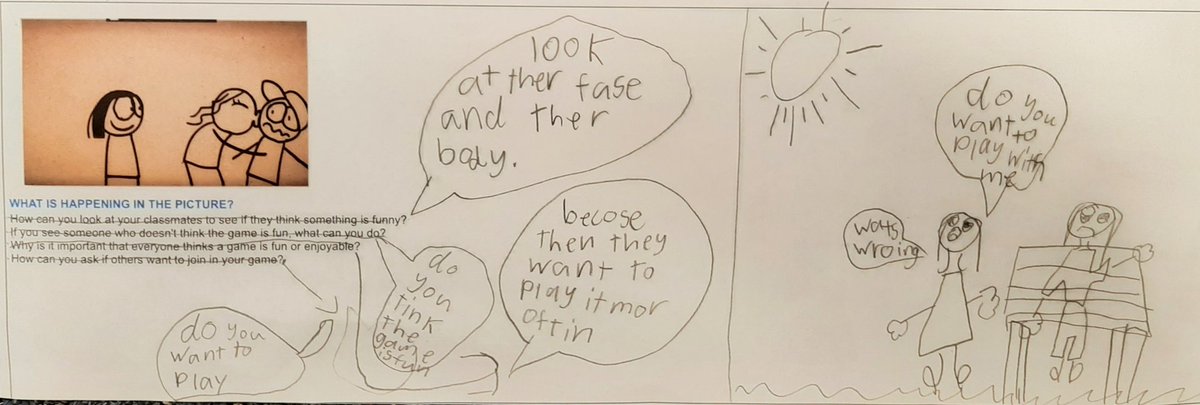 WHAT IS HAPPENING IN THE PICTURE?
How can you look at your classmates to see if they think something is funny?
If you see someone who doesn't think the game is fun, what can you do?
Why is it important that everyone thinks a game is fun or enjoyable?
How can you ask if others want to join in your game?
look
at ther fase
and ther
body.
becose
then they
want to
play it mor
oftin
do
you
tink
the
game
is fun
do you
want to
play
do you
want to
play with
me
wats
wroing